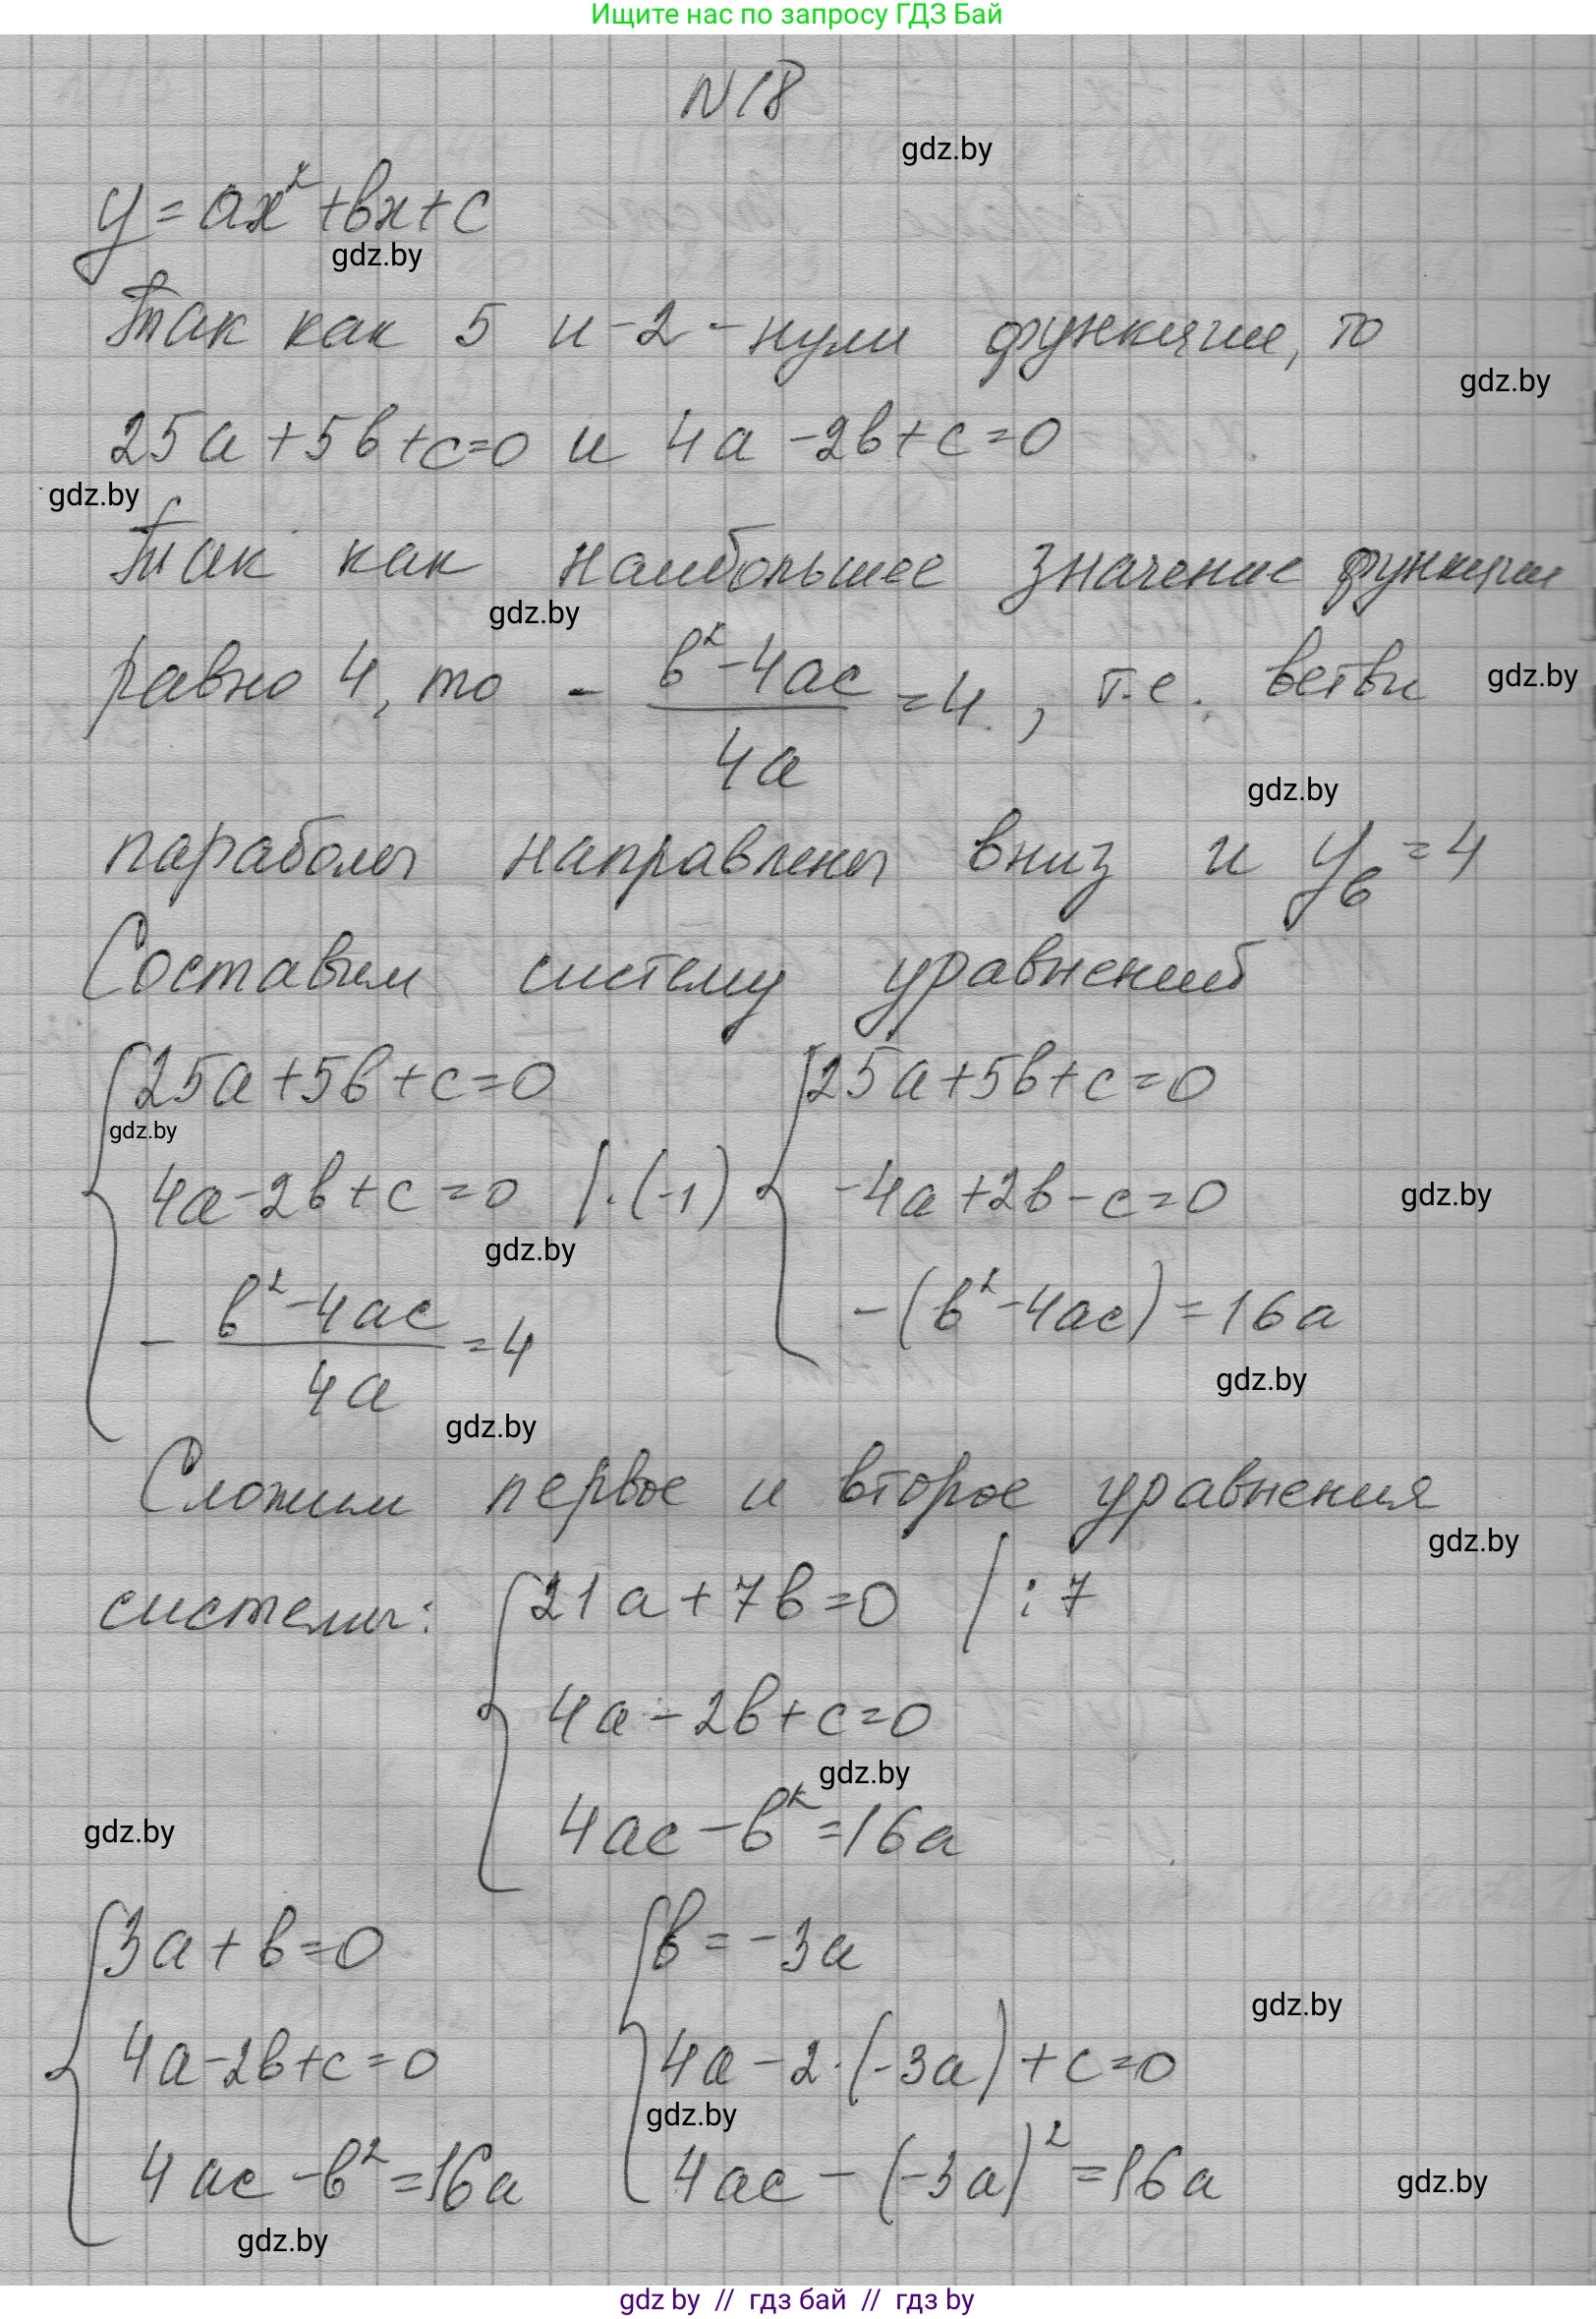 Ищите нас по запросу ГДЗ Бай
N18
gdz.by
y=ax²+bx+c
gdz.by
Так как 5 и -2 - нули функции, то
gdz.by
25a+5b+c=0 и 4a-2b+c=0
gdz.by
Так как наибольшее значение функции
gdz.by
равно 4, то - (b²-4ac)/4a =4, т.е. ветви
gdz.by
gdz.by
параболы направлены вниз и yв=4
Составим систему уравнений
{25a+5b+c=0 {25a+5b+c=0
gdz.by
4a-2b+c=0 |·(-1) -4a+2b-c=0
gdz.by
gdz.by
- (b²-4ac)/4a =4 -(b²-4ac)=16a
gdz.by
gdz.by
Сложим первое и второе уравнения
gdz.by
системы: {21a+7b=0 |:7
4a-2b+c=0
gdz.by
4ac-b²=16a
gdz.by
{3a+b=0 {b=-3a
gdz.by
4a-2b+c=0 4a-2·(-3a)+c=0
gdz.by
4ac-b²=16a 4ac-(-3a)²=16a
gdz.by
gdz.by
gdz by // гдз бай // гдз by